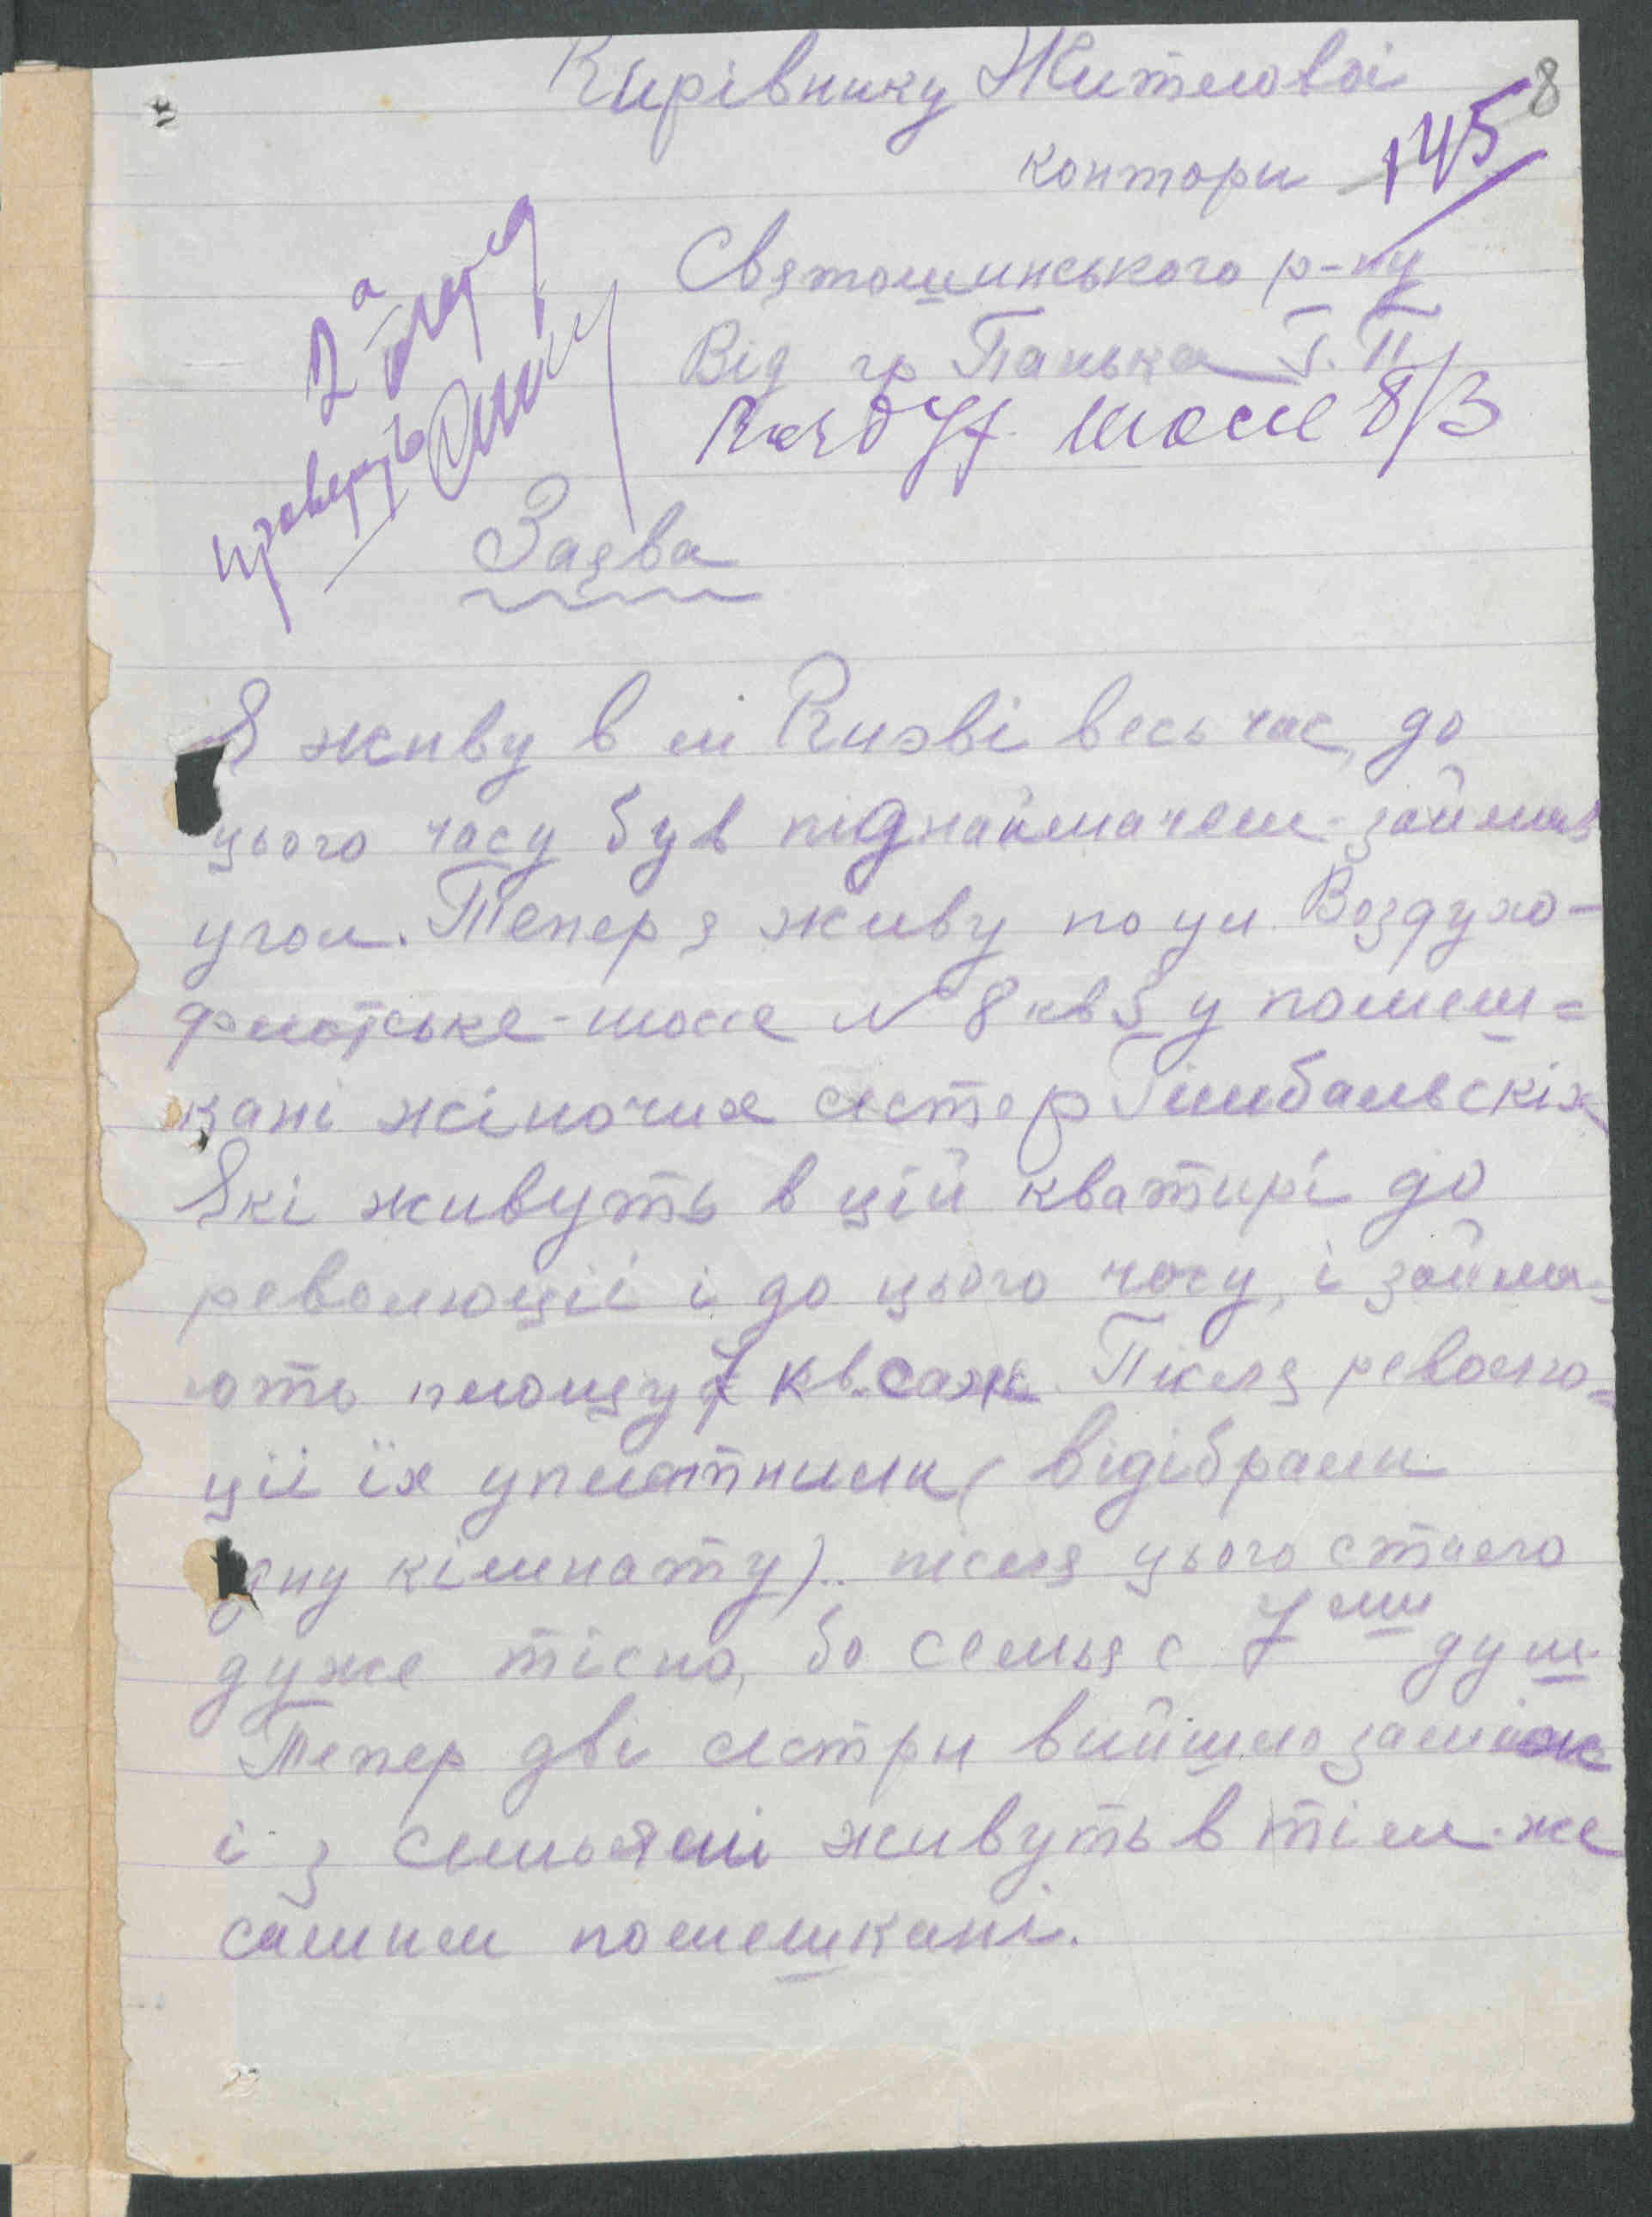 8
Кирівнику Житлової
контори 145
Святошинського р-ну
Від гр Панька Г. П
шосе 8/3
2а черга
проверить
Заява
Я живу в м Києві весь час, до
цього часу був піднаймачем-займав
угол. Тепер я живу по ул. Воздухо-
флотське-шосе № 8 кв 3 у помеш=
кані жіночих сестер Гімбальскіх
Які живуть в цій кватирі до
революціі і до цього часу, і займа=
ють площу 7 кв. саж. Після револю=
ціі їх уплотнили (відібрали
одну кімнату).. після цього стало
дуже тісно, бо семья с 7ми душ.
Тепер дві сестри вийшло заміж
і з семьями живуть в тім-же
самим помешкані.